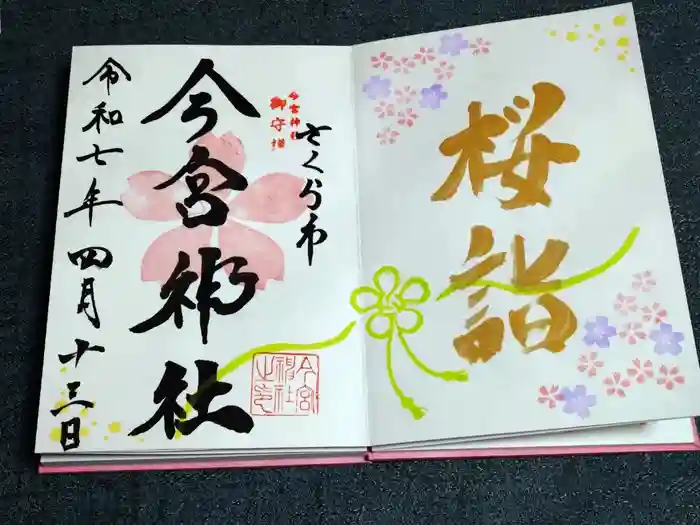 桜
詣
さくら市
今宮神社
御守護
今宮神社
今宮
神社
之印
令和七年四月十三日